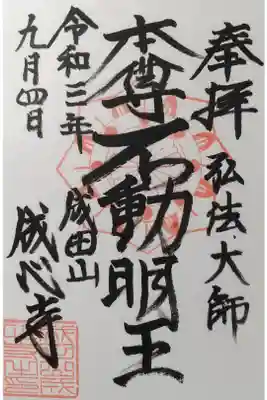 奉拝
弘法大師
本尊不動明王
成田山
成心寺
令和三年
九月四日